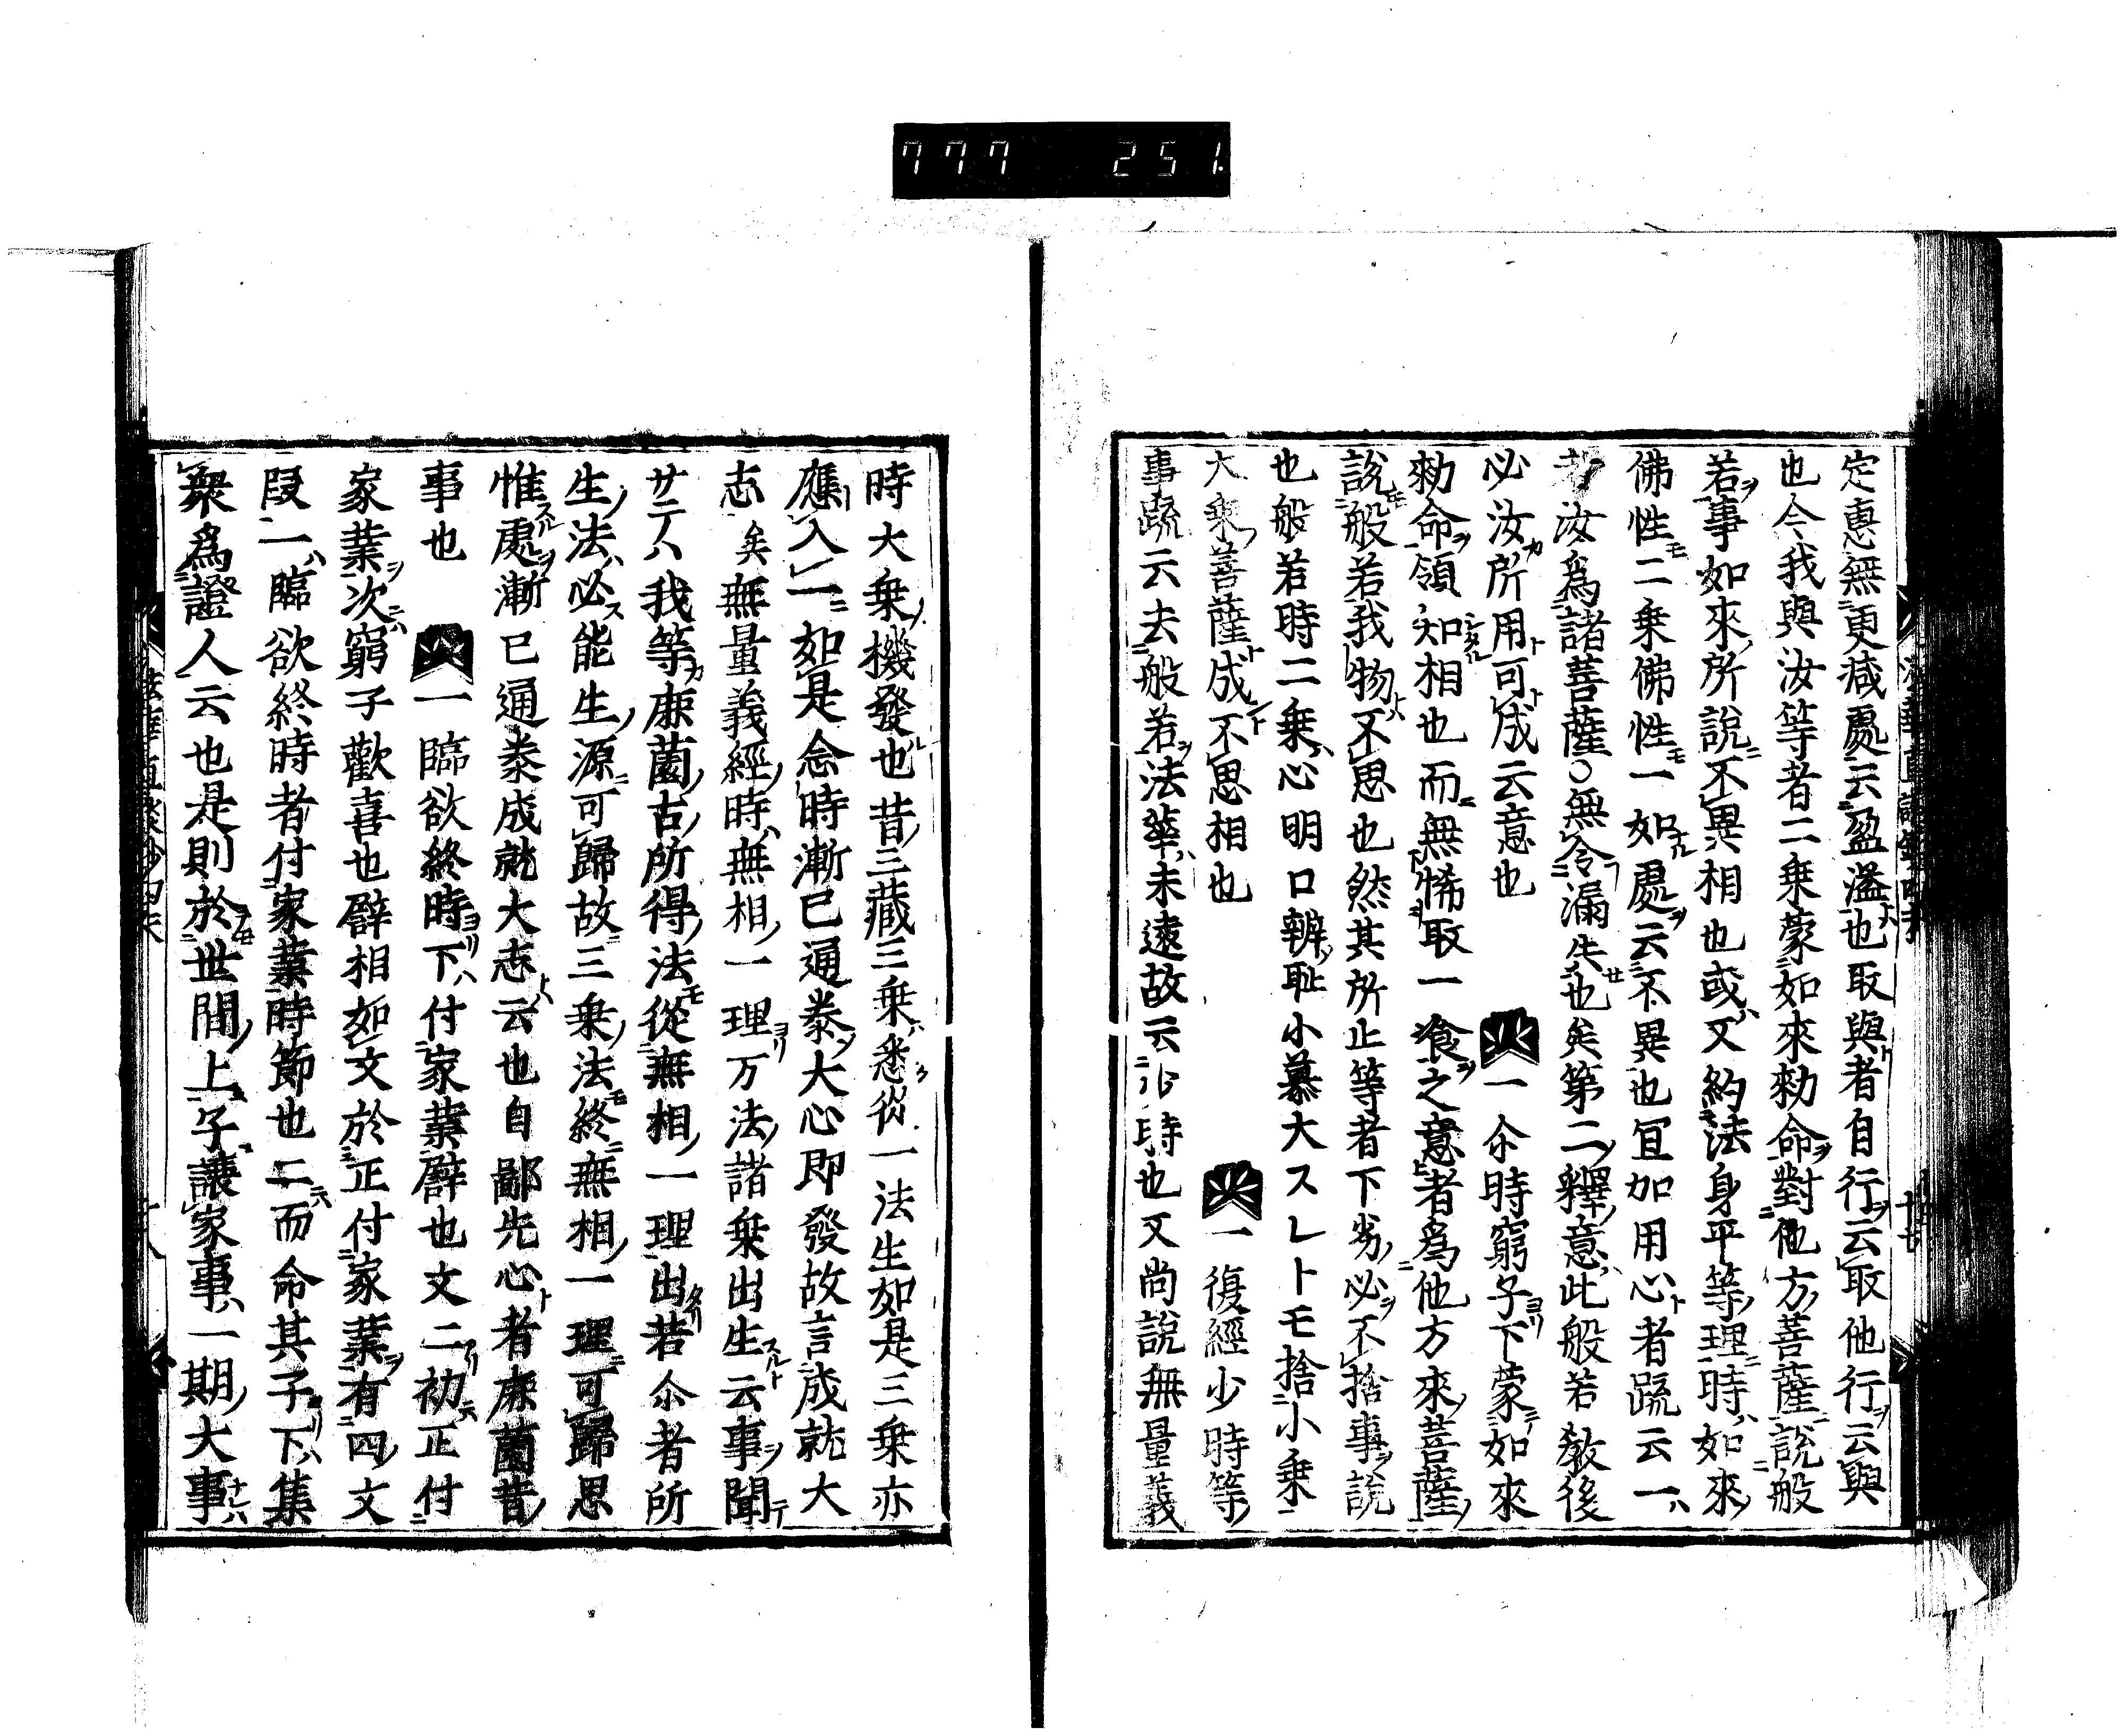 777 251.
定惠無更减處云盈溢也取與者自行云取他行云與
也今我與汝等者二乗蒙如來勅命對他方菩薩說般
若事如來所說不異相也或又約法身平等理時如來
佛性二乗佛性一如處云不異也冝加用心者䟽云一
汝爲諸菩薩○無令漏失也矣第二釋意此般若教後
必汝所用可成云意也 一尒時窮子下蒙如來
勅命領知相也而無悕取一飡之意者爲他方來菩薩
說般若我物不思也然其所止等者下劣必不捨事說
也般若時二乗心明口辨耻小慕大スレトモ捨小乗
大乗菩薩成不思相也 一復經少時等
事䟽云去般若法華未遠故云少時也又尚說無量義
時大乗機發也昔三藏三乗悉從一法生如是三乗亦
應入一如是念時漸已通泰大心即發故言成就大
志矣無量義經時無相一理万法諸乗出生云事聞
廿二八我等鹿薗古所得法從無相一理出若尒者所
生法必能生源可歸故三乗法終無相一理可歸思
惟處漸已通泰成就大志云也自鄙先心者鹿薗昔
事也 一臨欲終時下付家業譬也文二初正付
家業次窮子歡喜也譬相如文於正付家業有四文
段一臨欲終時者付家業時節也二而命其子下集
衆爲證人云也是則於世間上子讓家事一期大事